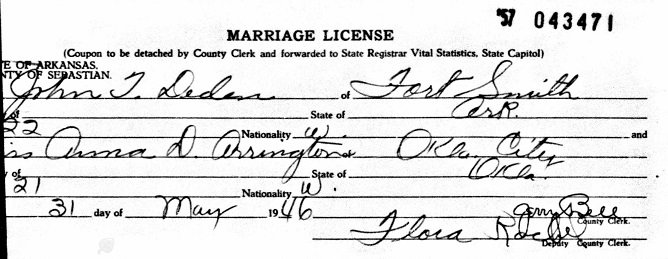 '57 043471
MARRIAGE LICENSE
(Coupon to be detached by County Clerk and forwarded to State Registrar Vital Statistics, State Capitol)
TE OF ARKANSAS.
NTY OF SEBASTIAN.
John T. Deden of Fort Smith
of State of Ark.
22 Nationality W. and
iss Anna D. Arrington of Okla. City
of State of Okla.
21 Nationality W.
31 day of May 1946 Gerry Bell
County Clerk.
Flora
Deputy County Clerk.